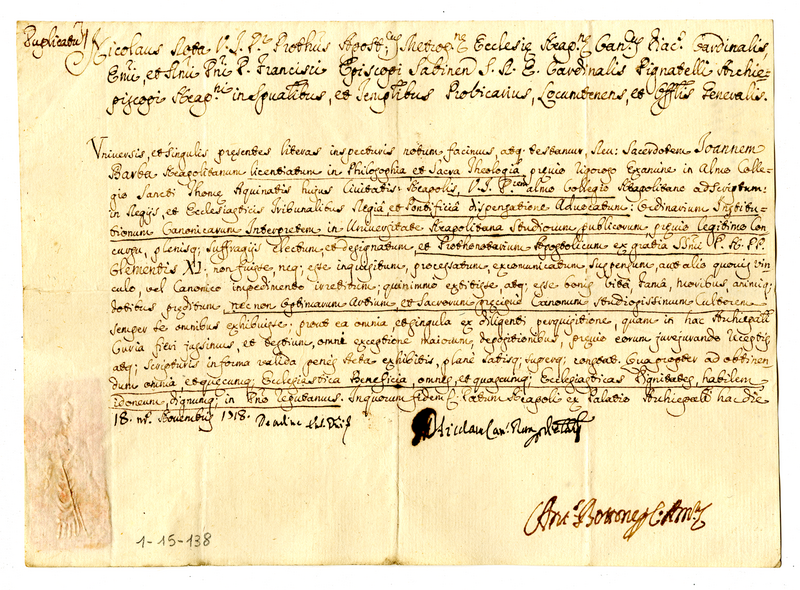 Duplicatum
Nicolaus Rota V. J. D. Prothus Apost. Metrop. Ecclesiæ Neap. Can. Diac. Cardinalis
Emi, et Rmi Dni D. Francisci Episcopi Sabinen S. R. E. Cardinalis Pignatelli Archie-
piscopi Neap. in Spualibus, et Templibus Provicarius, Locumtenens, et Offlis Generalis.
Universis, et singulis presentes literas inspecturis notum facimus, atq; testamur, Rev: Sacerdotem Joannem
Barba Neapolitanum licentiatum in Philosophia et Sacra Theologia previo rigoroso Examine in Almo Colle-
gio Sancti Thomæ Aquinatis hujus Civitatis Neapolis, V. J. D. almo Collegio Neapolitano adscriptum:
in Regijs, et Ecclesiasticis Tribunalibus Regia, et Pontificia dispensatione Advocatum: Ordinarium Institu-
tionum Canonicarum Interpretem in Universitate Neapolitana Studiorum publicorum, previo legitimo Con
cursu, plenisq; suffragijs Electum, et designatum et Prothonotarium Apostolicum ex gratia Ssmi D. N. PP.
Clementis XI: non fuisse, neq; esse inquisitum, processatum, excomunicatum, suspensum, aut alio quovis vin
culo, vel Canonico impedimento irretitum; quinimmo extitisse, atq; esse bonis vita, fama, moribus, animiq;
dotibus preditum, nec non Optimarum Artium et Sacrorum precipue Canonum Studiosissimum Cultorem
semper se omnibus exhibuisse; prout ea omnia, et singula ex diligenti perquisitione, quam in hac Archiepali
Curia fieri jussimus, et testium, omni exceptione maiorum, depositionibus, previo eorum jurejurando receptis
atq; scripturis in forma valida penes Acta exhibitis, plane satisq; superq; constat. Quapropter ad obtinen
dum omnia et quecumq; Ecclesiastica Beneficia, omnes, et quascumq; Ecclesiasticas Dignitates, habilem
idoneum, dignumq; in Dno reputamus. In quorum fidem Datum Neapoli ex Palatio Archiepali hac die
18. Novembris 1718.
Nicolaus Can. Rota
Ant. Bottone
1-15-138